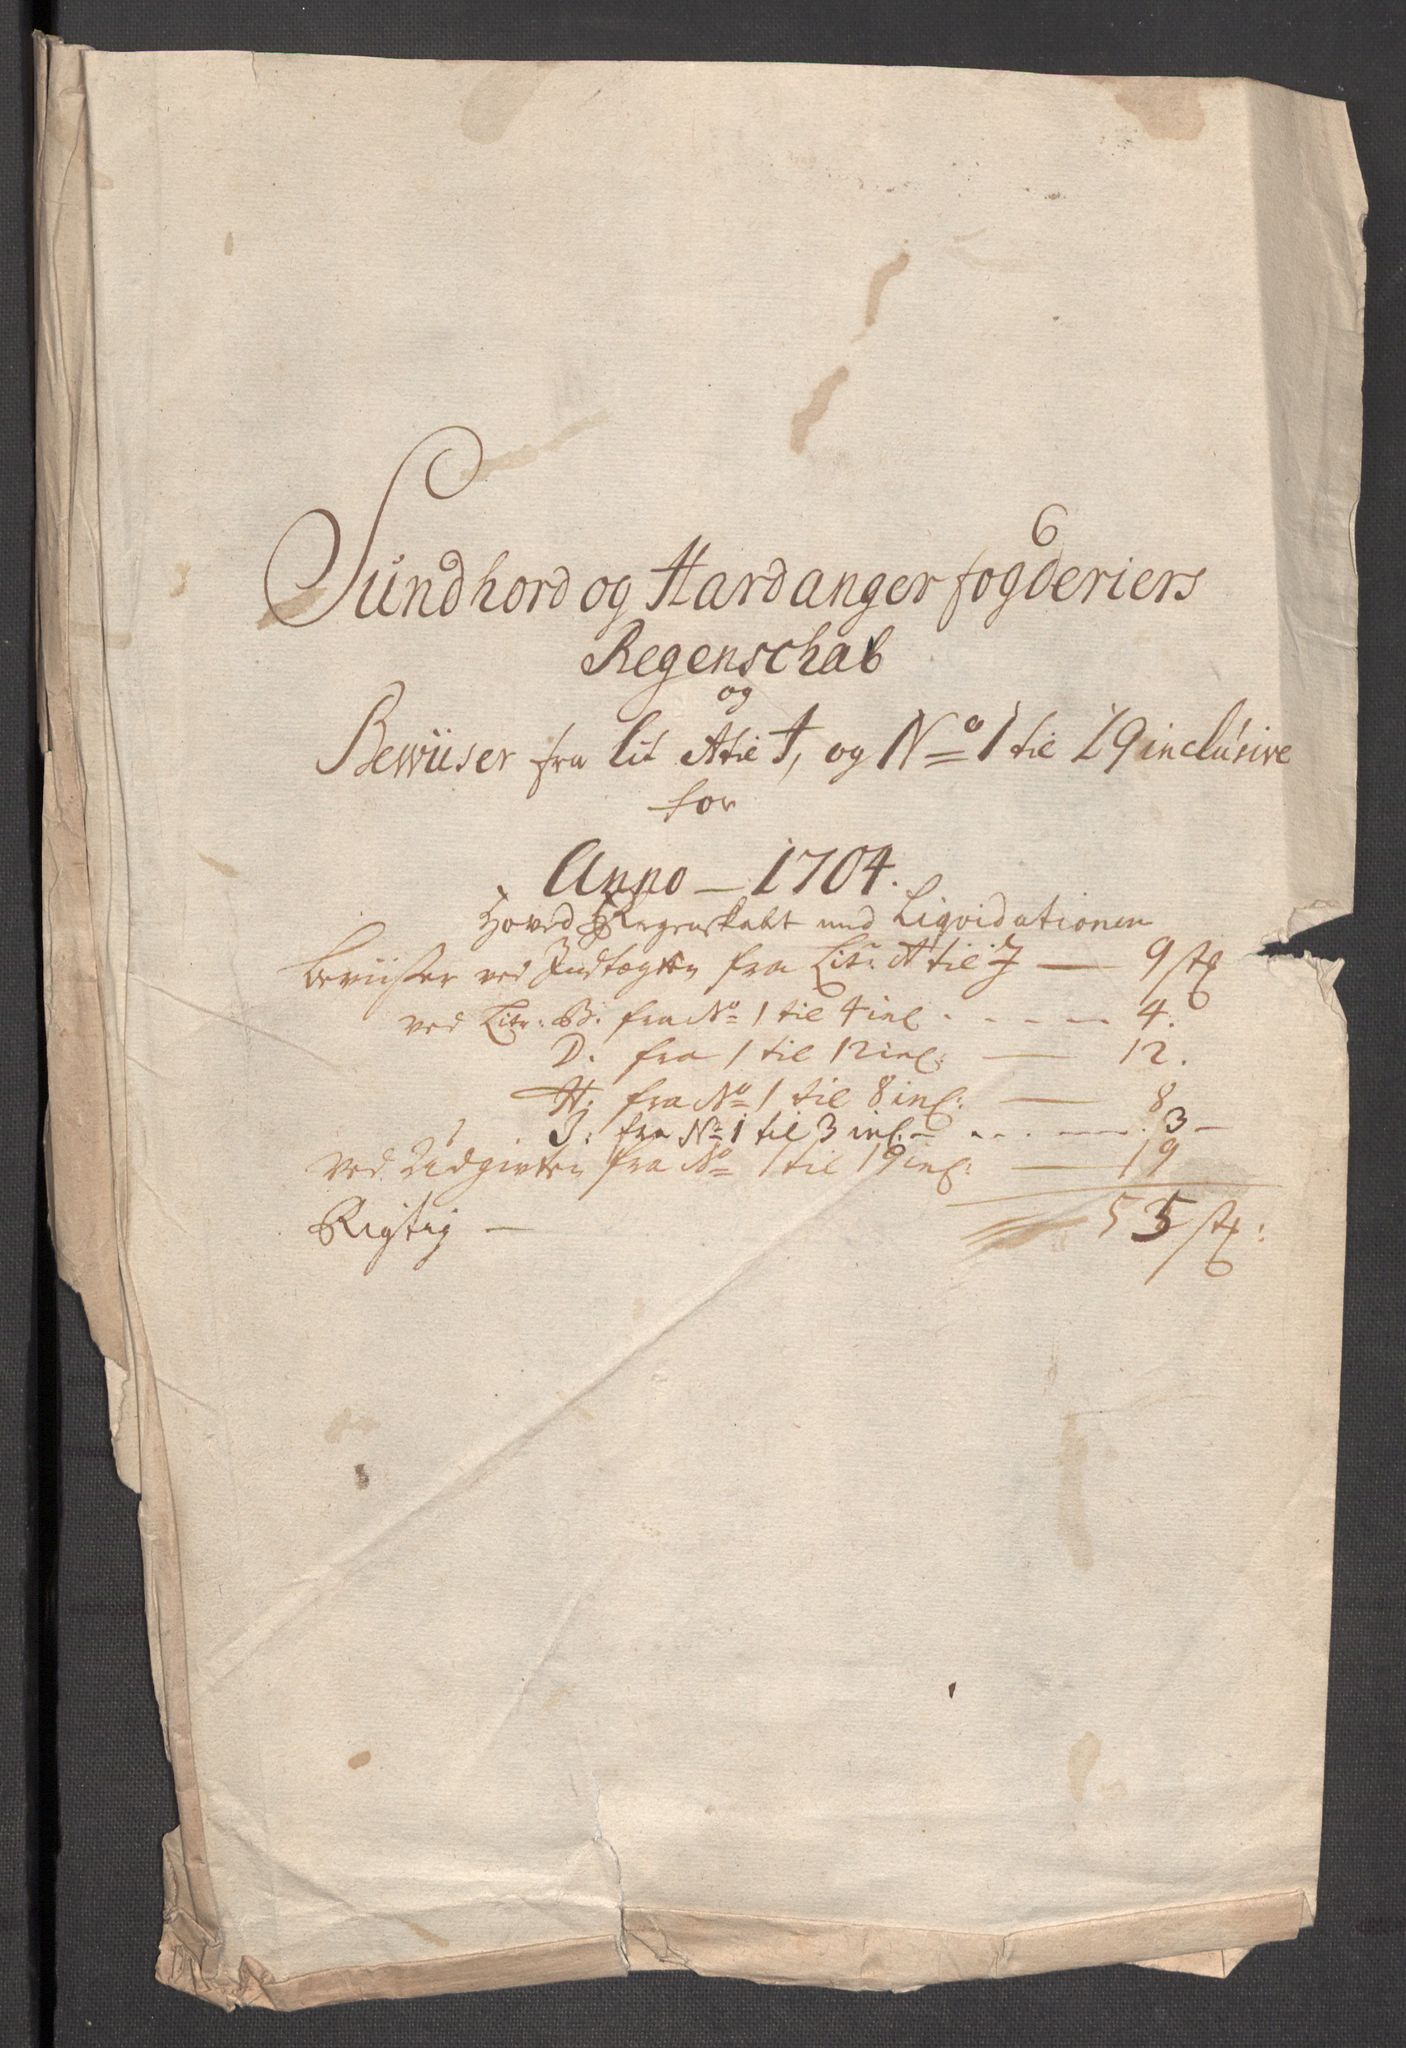 Sundhord og Hardanger fogderiers
Regenschab
og
Bewiiser fra Lit A til J, og No 1 til 19 inclusive
for
Anno - 1704.
Hoved Regenskabt med Liqvidationen
Beviisser ved Indtægten fra Litr: A til J — 9 st
ved Litr: B. fra No 1 til 4 incl . - - - - 4.
D. fra 1 til 12 incl: — 12.
H: fra No 1 til 8 incl: — 8
J: fra No 1 til 3 incl. - - - . — . 3 -
Ved Udgivten fra No 1 til 19 incl: — 19
Rigtig — 55 st: